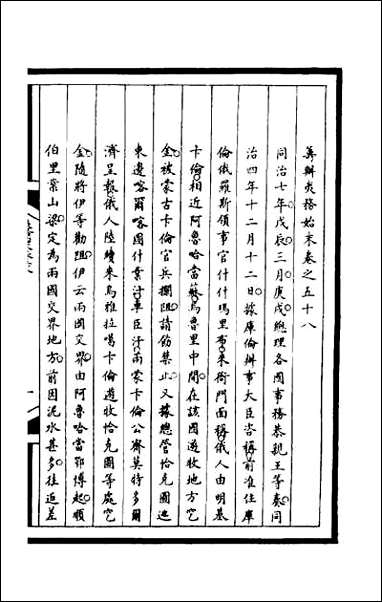 籌辦夷務始末卷之五十八
同治七年戊辰三月庚戌總理各國事務恭親王等奏同
治四年十二月十二日據庫倫辦事大臣咨稱前准住庫
倫俄羅斯領事官什什瑪里布來衙門面稱俄人由明基
卡倫相近阿魯哈當蘇烏魯里中間在該國遊牧地方空
金被蒙古卡倫官兵攔阻請飭禁止又據總管恰克圖迤
東邊喀爾喀圖什業汗車臣汗兩蒙卡倫公齋莫特多爾
濟呈報俄人陸續來烏雅拉噶卡倫遊牧恰克圖等處空
金隨將伊等勸阻伊云兩國交界由阿魯哈當鄂博起順
伯里葉山梁定為兩國交界地方前因泥水甚多往返差